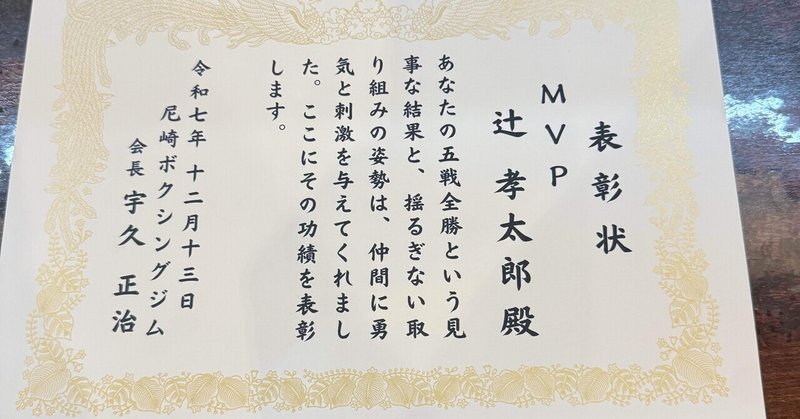 表彰状
MVP
辻 孝太郎殿
あなたの五戦全勝という見
事な結果と、揺るぎない取
り組みの姿勢は、仲間に勇
気と刺激を与えてくれまし
た。ここにその功績を表彰
します。
令和七年 十二月十三日
尼崎ボクシングジム
会長 宇久 正治